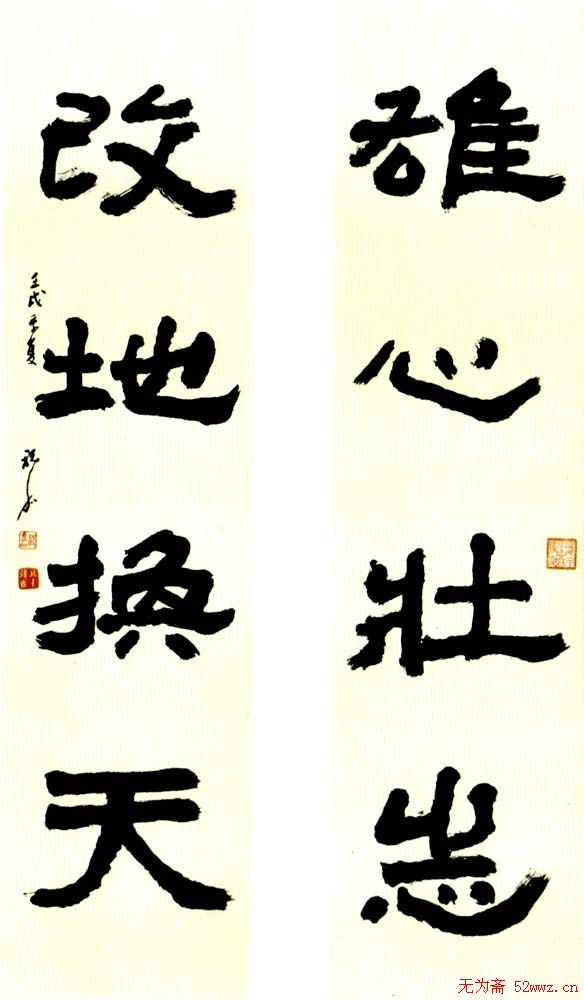 雄心壯志
改地換天
壬戌季夏
无为斋 52wwz.cn